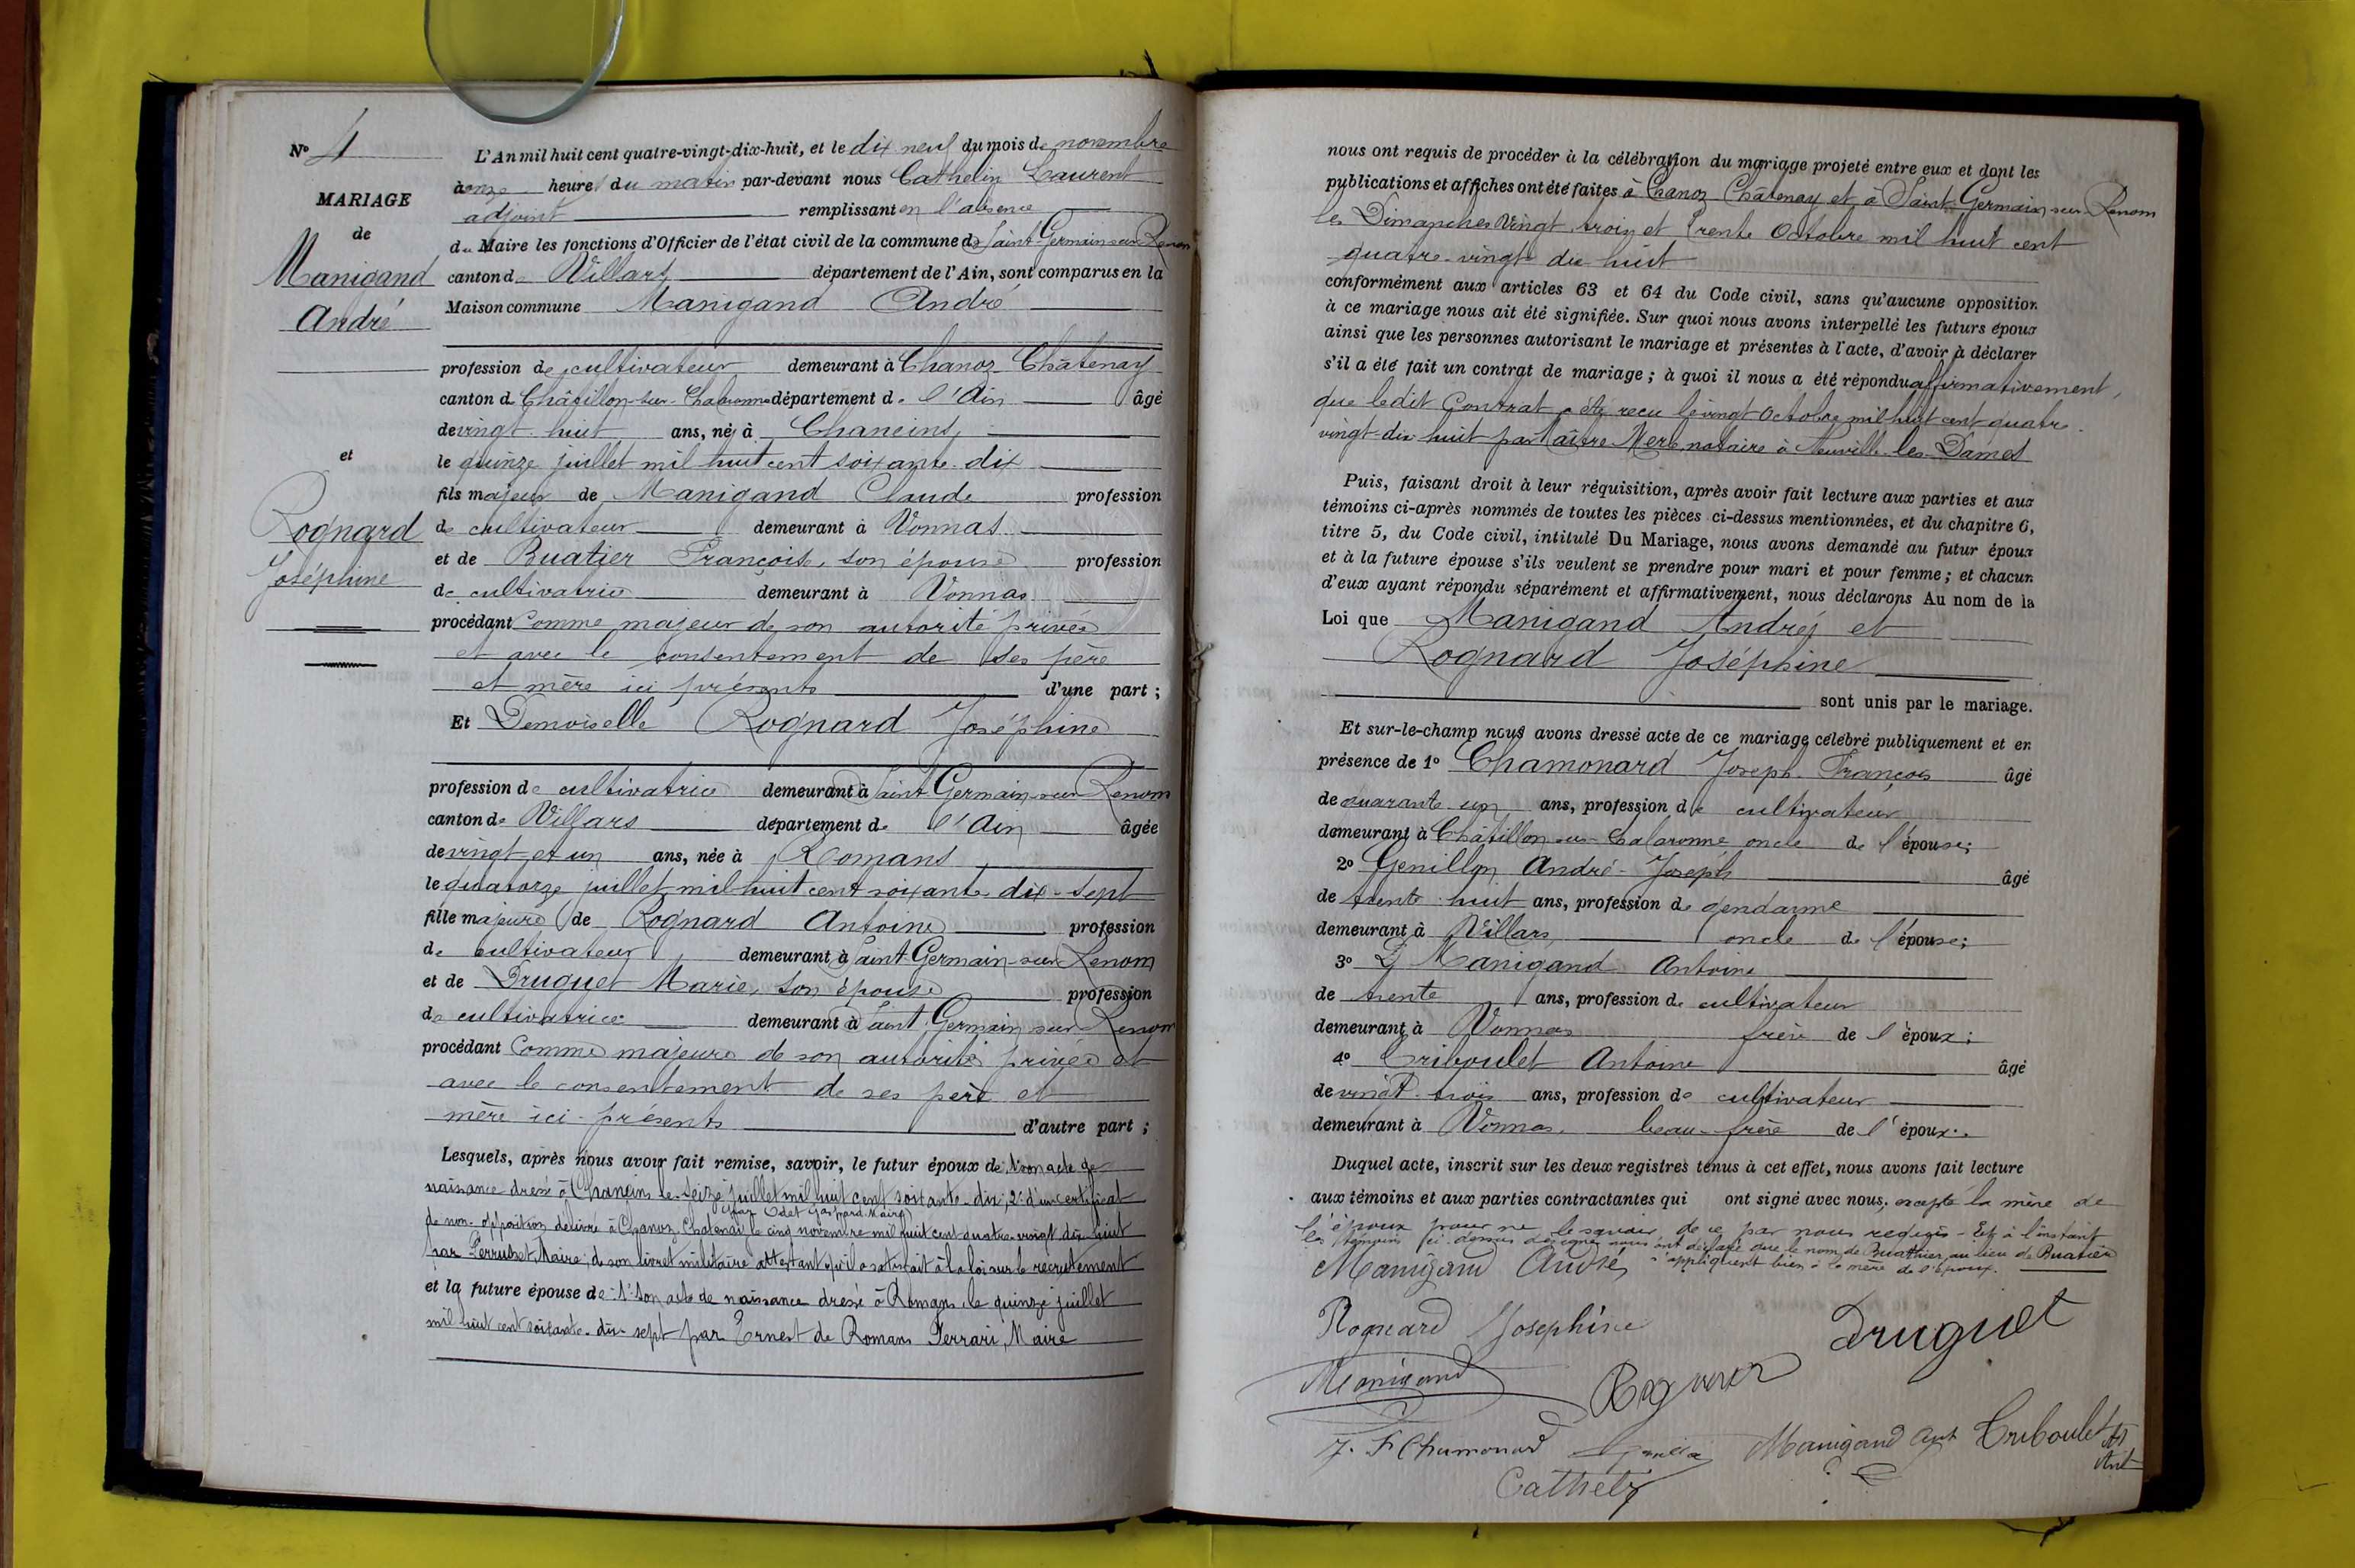 N° 4
MARIAGE
de
Manigand
André
et
Rognard
Joséphine
L'An mil huit cent quatre-vingt-dix-huit, et le dix neuf du mois de novembre
à onze heures du matin par-devant nous Cathelin Laurent
adjoint remplissant en l'absence
du Maire les fonctions d'Officier de l'état civil de la commune de Saint-Germain-sur-Renom
canton de Villars département de l'Ain, sont comparus en la
Maison commune Manigand André
profession de cultivateur demeurant à Chanoz-Châtenay
canton de Châtillon-sur-Chalaronne département de l'Ain âgé
de vingt-huit ans, né à Chaneins
le quinze juillet mil huit cent soixante-dix
fils majeur de Manigand Claude profession
de cultivateur demeurant à Vonnas
et de Buatier Françoise, son épouse profession
de cultivatrice demeurant à Vonnas
procédant Comme majeur de son autorité privée
et avec le consentement de ses père
et mère ici présents d'une part ;
Et Demoiselle Rognard Joséphine
profession de cultivatrice demeurant à Saint-Germain-sur-Renom
canton de Villars département de l'Ain âgée
de vingt et un ans, née à Romans
le quatorze juillet mil huit cent soixante-dix-sept
fille majeure de Rognard Antoine profession
de cultivateur demeurant à Saint-Germain-sur-Renom
et de Druguet Marie, son épouse profession
de cultivatrice demeurant à Saint-Germain-sur-Renom
procédant Comme majeure de son autorité privée et
avec le consentement de ses père et
mère ici-présents d'autre part ;
Lesquels, après nous avoir fait remise, savoir, le futur époux de 1° son acte de
naissance dressé à Chaneins le seize juillet mil huit cent soixante-dix, 2° d'un certificat
par Odet Gaspard Maire
de non-opposition délivré à Chanoz Chatenay le cinq novembre mil huit cent quatre-vingt-dix-huit
par Perruset, Maire, de son livret militaire attestant qu'il a satisfait à la loi sur le recrutement
et la future épouse de : 1° Son acte de naissance dressé à Romans le quinze juillet
mil huit cent soixante-dix-sept par Ernest de Romans Ferrari, Maire
nous ont requis de procéder à la célébration du mariage projeté entre eux et dont les
publications et affiches ont été faites à Chanoz-Châtenay et à Saint-Germain-sur-Renom
les Dimanches Vingt trois et trente Octobre mil huit cent
quatre-vingt-dix-huit
conformément aux articles 63 et 64 du Code civil, sans qu'aucune opposition
à ce mariage nous ait été signifiée. Sur quoi nous avons interpellé les futurs époux
ainsi que les personnes autorisant le mariage et présentes à l'acte, d'avoir à déclarer
s'il a été fait un contrat de mariage ; à quoi il nous a été répondu affirmativement,
que ledit Contrat a été reçu le vingt Octobre mil huit cent quatre-
vingt-dix huit par Maître Merle notaire à Neuville-les-Dames
Puis, faisant droit à leur réquisition, après avoir fait lecture aux parties et aux
témoins ci-après nommés de toutes les pièces ci-dessus mentionnées, et du chapitre 6,
titre 5, du Code civil, intitulé Du Mariage, nous avons demandé au futur époux
et à la future épouse s'ils veulent se prendre pour mari et pour femme ; et chacun
d'eux ayant répondu séparément et affirmativement, nous déclarons Au nom de la
Loi que Manigand André et
Rognard Joséphine
sont unis par le mariage.
Et sur-le-champ nous avons dressé acte de ce mariage célébré publiquement et en
présence de 1° Chamonard Joseph-François âgé
de quarante-un ans, profession de cultivateur
demeurant à Châtillon-sur-Chalaronne oncle de l'épouse ;
2° Genillon André-Joseph âgé
de trente-huit ans, profession de gendarme
demeurant à Villars oncle de l'épouse ;
3° Manigand Antoine
de trente ans, profession de cultivateur
demeurant à Vonnas frère de l'époux ;
4° Triboulet Antoine âgé
de vingt-trois ans, profession de cultivateur
demeurant à Vonnas, beau-frère de l'époux.
Duquel acte, inscrit sur les deux registres tenus à cet effet, nous avons fait lecture
aux témoins et aux parties contractantes qui ont signé avec nous, excepté la mère de
l'époux pour ne le savoir de ce par nous requis - Et à l'instant
les témoins ci-dessus désignés nous ont déclaré que le nom de Buathier au lieu de Buatier
s'appliquent bien à la mère de l'époux.
Manigand André
Rognard Joséphine
Druguet
Manigand
Rognard
J. F Chamonard
Manigand Ant
Triboulet
Ant
Cathelin